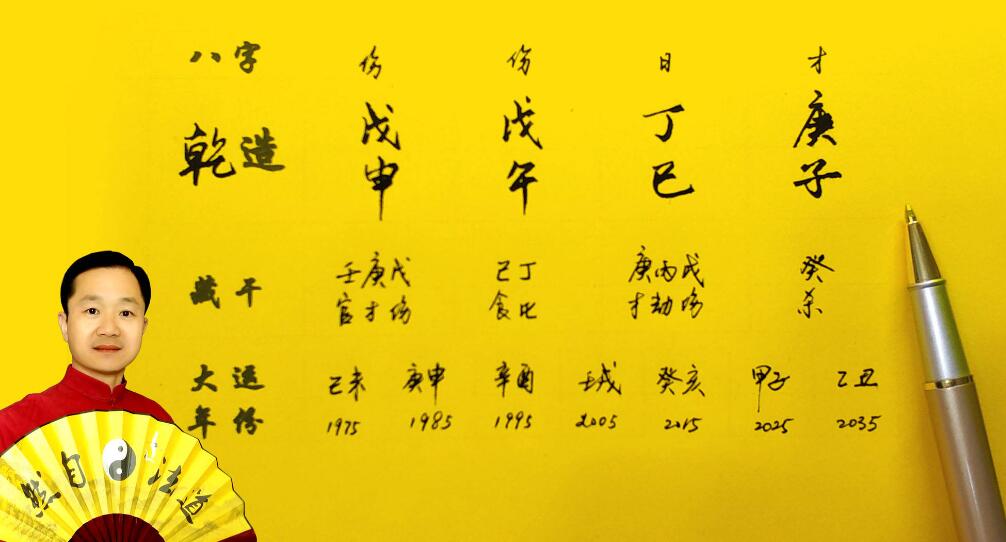 八字 伤 伤 日 才
乾造 戊 戊 丁 庚
申 午 巳 子
藏干 壬庚戊 己丁 庚丙戊 癸
官才伤 食比 才劫伤 杀
大运 己未 庚申 辛酉 壬戌 癸亥 甲子 乙丑
年份 1975 1985 1995 2005 2015 2025 2035
道法自然